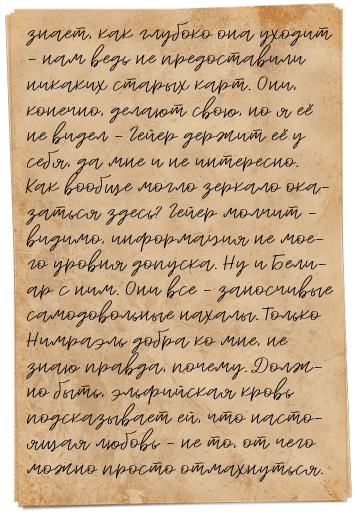 знает, как глубоко она уходит
- нам ведь не предоставили
никаких старых карт. Они,
конечно, делают свою, но я её
не видел - Гейер держит её у
себя, да мне и не интересно.
Как вообще могло зеркало ока-
заться здесь? Гейер молчит -
видимо, информация не мое-
го уровня допуска. Ну и Бели-
ар с ним. Они все - заносчивые
самодовольные нахалы. Только
Нимраэль добра ко мне, не
знаю правда, почему. Долж-
но быть, эльфийская кровь
подсказывает ей, что насто-
ящая любовь - не то, от чего
можно просто отмахнуться.